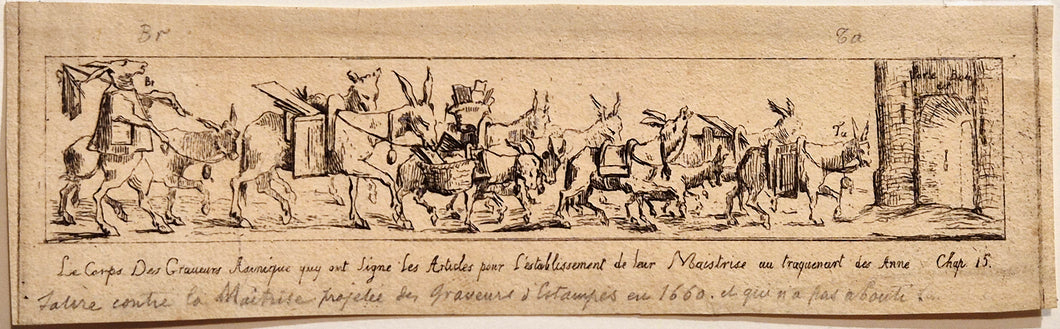 Br Ta
Br
Ta
Le Corps Des Graveurs Asinique quy ont Signe Les Articles pour L'establissement de leur Maistrise au traquenart des Anne Chap. 15.
Satire contre la Maîtrise projetée des graveurs d'Estampes en 1660. et qui n'a pas abouti